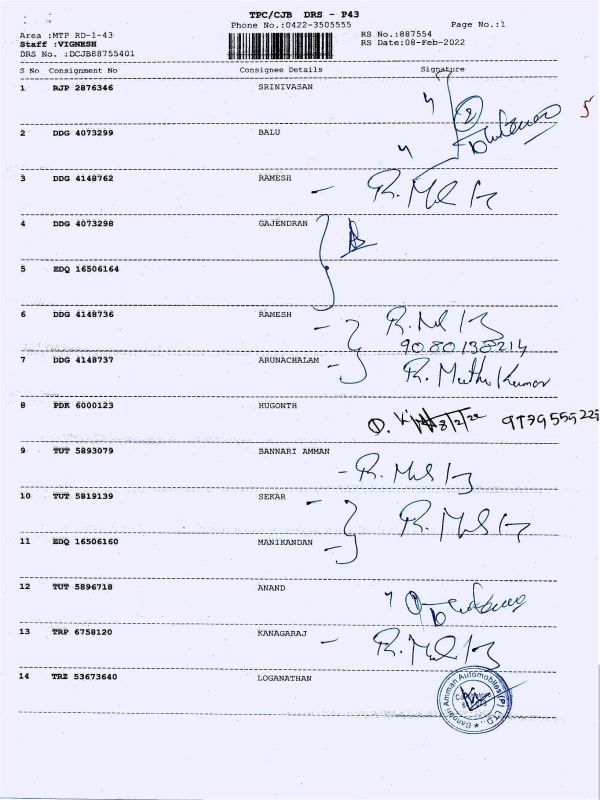 TPC/CJB DRS - P43
Phone No.:0422-3505555 Page No.:1
Area :MTP RD-1-43 RS No.:887554
Staff :VIGNESH RS Date:08-Feb-2022
DRS No. :DCJB88755401
S No Consignment No Consignee Details Signature
1 RJP 2876346 SRINIVASAN
5
2 DDG 4073299 BALU
3 DDG 4148762 RAMESH
4 DDG 4073298 GAJENDRAN
5 EDQ 16506164
6 DDG 4148736 RAMESH
9080138214
7 DDG 4148737 ARUNACHALAM R. Muthu Kumar
8 PDK 6000123 HUGONTH 8/2/22
9 TUT 5893079 BANNARI AMMAN
10 TUT 5819139 SEKAR
11 EDQ 16506160 MANIKANDAN
12 TUT 5896718 ANAND
13 TRP 6758120 KANAGARAJ
14 TRZ 53673640 LOGANATHAN
Bannari Amman Automobiles (P) LTD.,